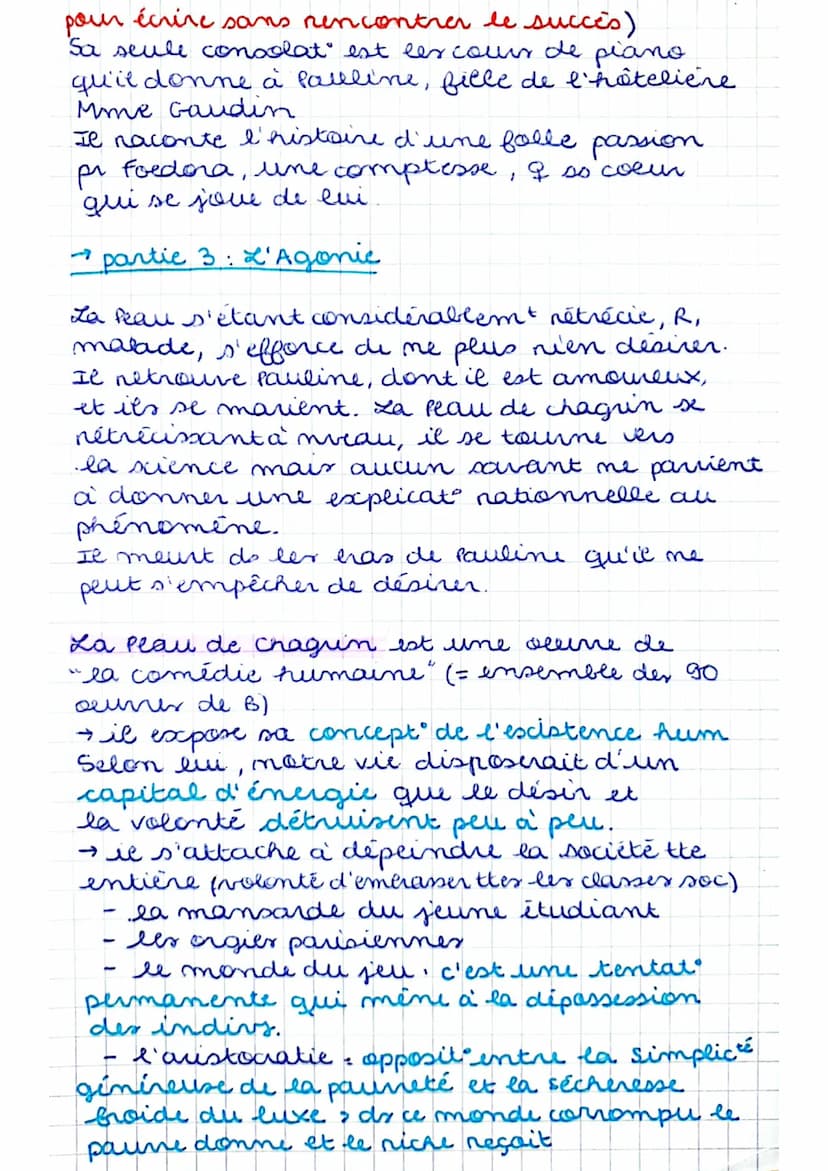 pour écrire sans rencontrer le succès)
Sa seule consolat° est les cours de piano
qu'il donne à Pauline, fille de l'hôtelière
Mme Gaudin
Il raconte l'histoire d'une folle passion
pr Foedora, une comptesse, ss coeur
qui se joue de lui.
→ partie 3 : L'Agonie
La Peau s'étant considérablemt rétrécie, R,
malade, s'efforce de ne plus rien désirer.
Il retrouve Pauline, dont il est amoureux,
et ils se marient. La Peau de chagrin se
rétrécissant à nveau, il se tourne vers
la science mais aucun savant ne parvient
à donner une explicat° rationnelle au
phénomène.
Il meurt ds les bras de Pauline qu'il ne
peut s'empêcher de désirer.
La Peau de Chagrin est une oeuvre de
"la comédie humaine" (= ensemble des 90
oeuvres de B)
→ il expose sa concept° de l'existence hum
Selon lui, notre vie disposerait d'un
capital d'énergie que le désir et
la volonté détruisent peu à peu.
→ il s'attache à dépeindre la société tte
entière (volonté d'embrasser ttes les classes soc)
- la mansarde du jeune étudiant
- les orgies parisiennes
- le monde du jeu : c'est une tentat°
permanente qui mène à la dépossession
des indivs.
- l'aristocratie : opposit° entre la simplicité
généreuse de la pauvreté et la sécheresse
froide du luxe > ds ce monde corrompu le
pauvre donne et le riche reçoit